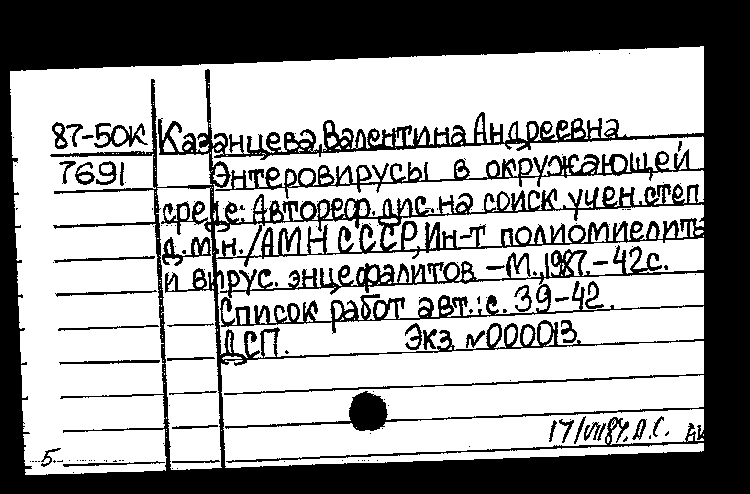 87-50К Казанцева, Валентина Андреевна.
7691 Энтеровирусы в окружающей
среде: Автореф. дис. на соиск. учен. степ.
д.м.н. /АМН СССР, Ин-т полиомиелита
и вирус. энцефалитов -М., 1987.-42с.
Список работ авт.: с. 39-42.
ДСП. Экз №000013.
17/VII87. Л.С.
5